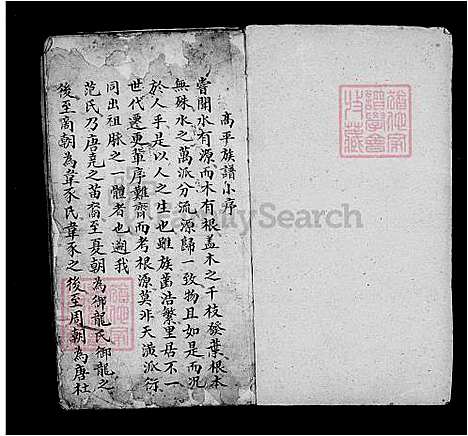 高平族譜小序
嘗聞水有源而木有根盖木之千枝發葉根本
無殊水之萬派分流源歸一致物且如是而况
於人乎是以人之生也雖族蕃浩繁里居不一
世代遷更輩序難齊而考根源莫非天潢派衍
同出祖脈之一體者也遡我
范氏乃唐堯之苗裔至夏朝為御龍氏御龍之
後至商朝為韋豕氏韋豕之後至周朝為唐杜
FamilySearch